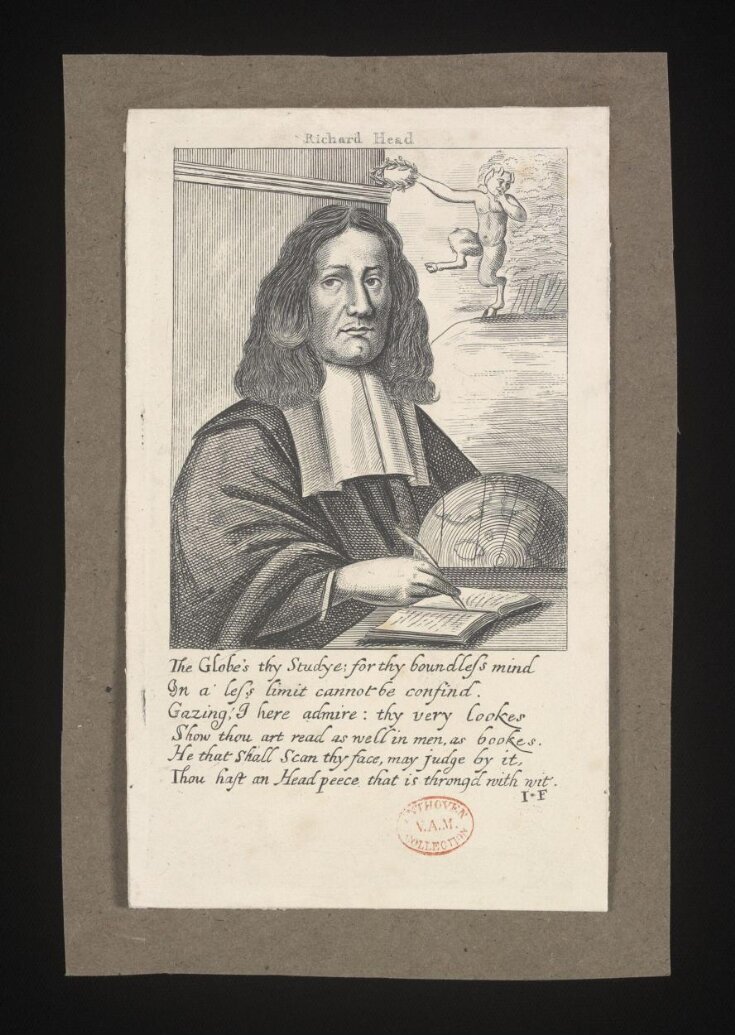 Richard Head
The Globe's thy Studye; for thy boundleſs mind
In a leſs limit cannot be confind.
Gazing, I here admire: thy very lookes
Show thou art read as well in men, as bookes.
He that Shall Scan thy face, may judge by it,
Thou haſt an Head peece that is throngd with wit.
I·F
ENTHOVEN
V.A.M.
COLLECTION